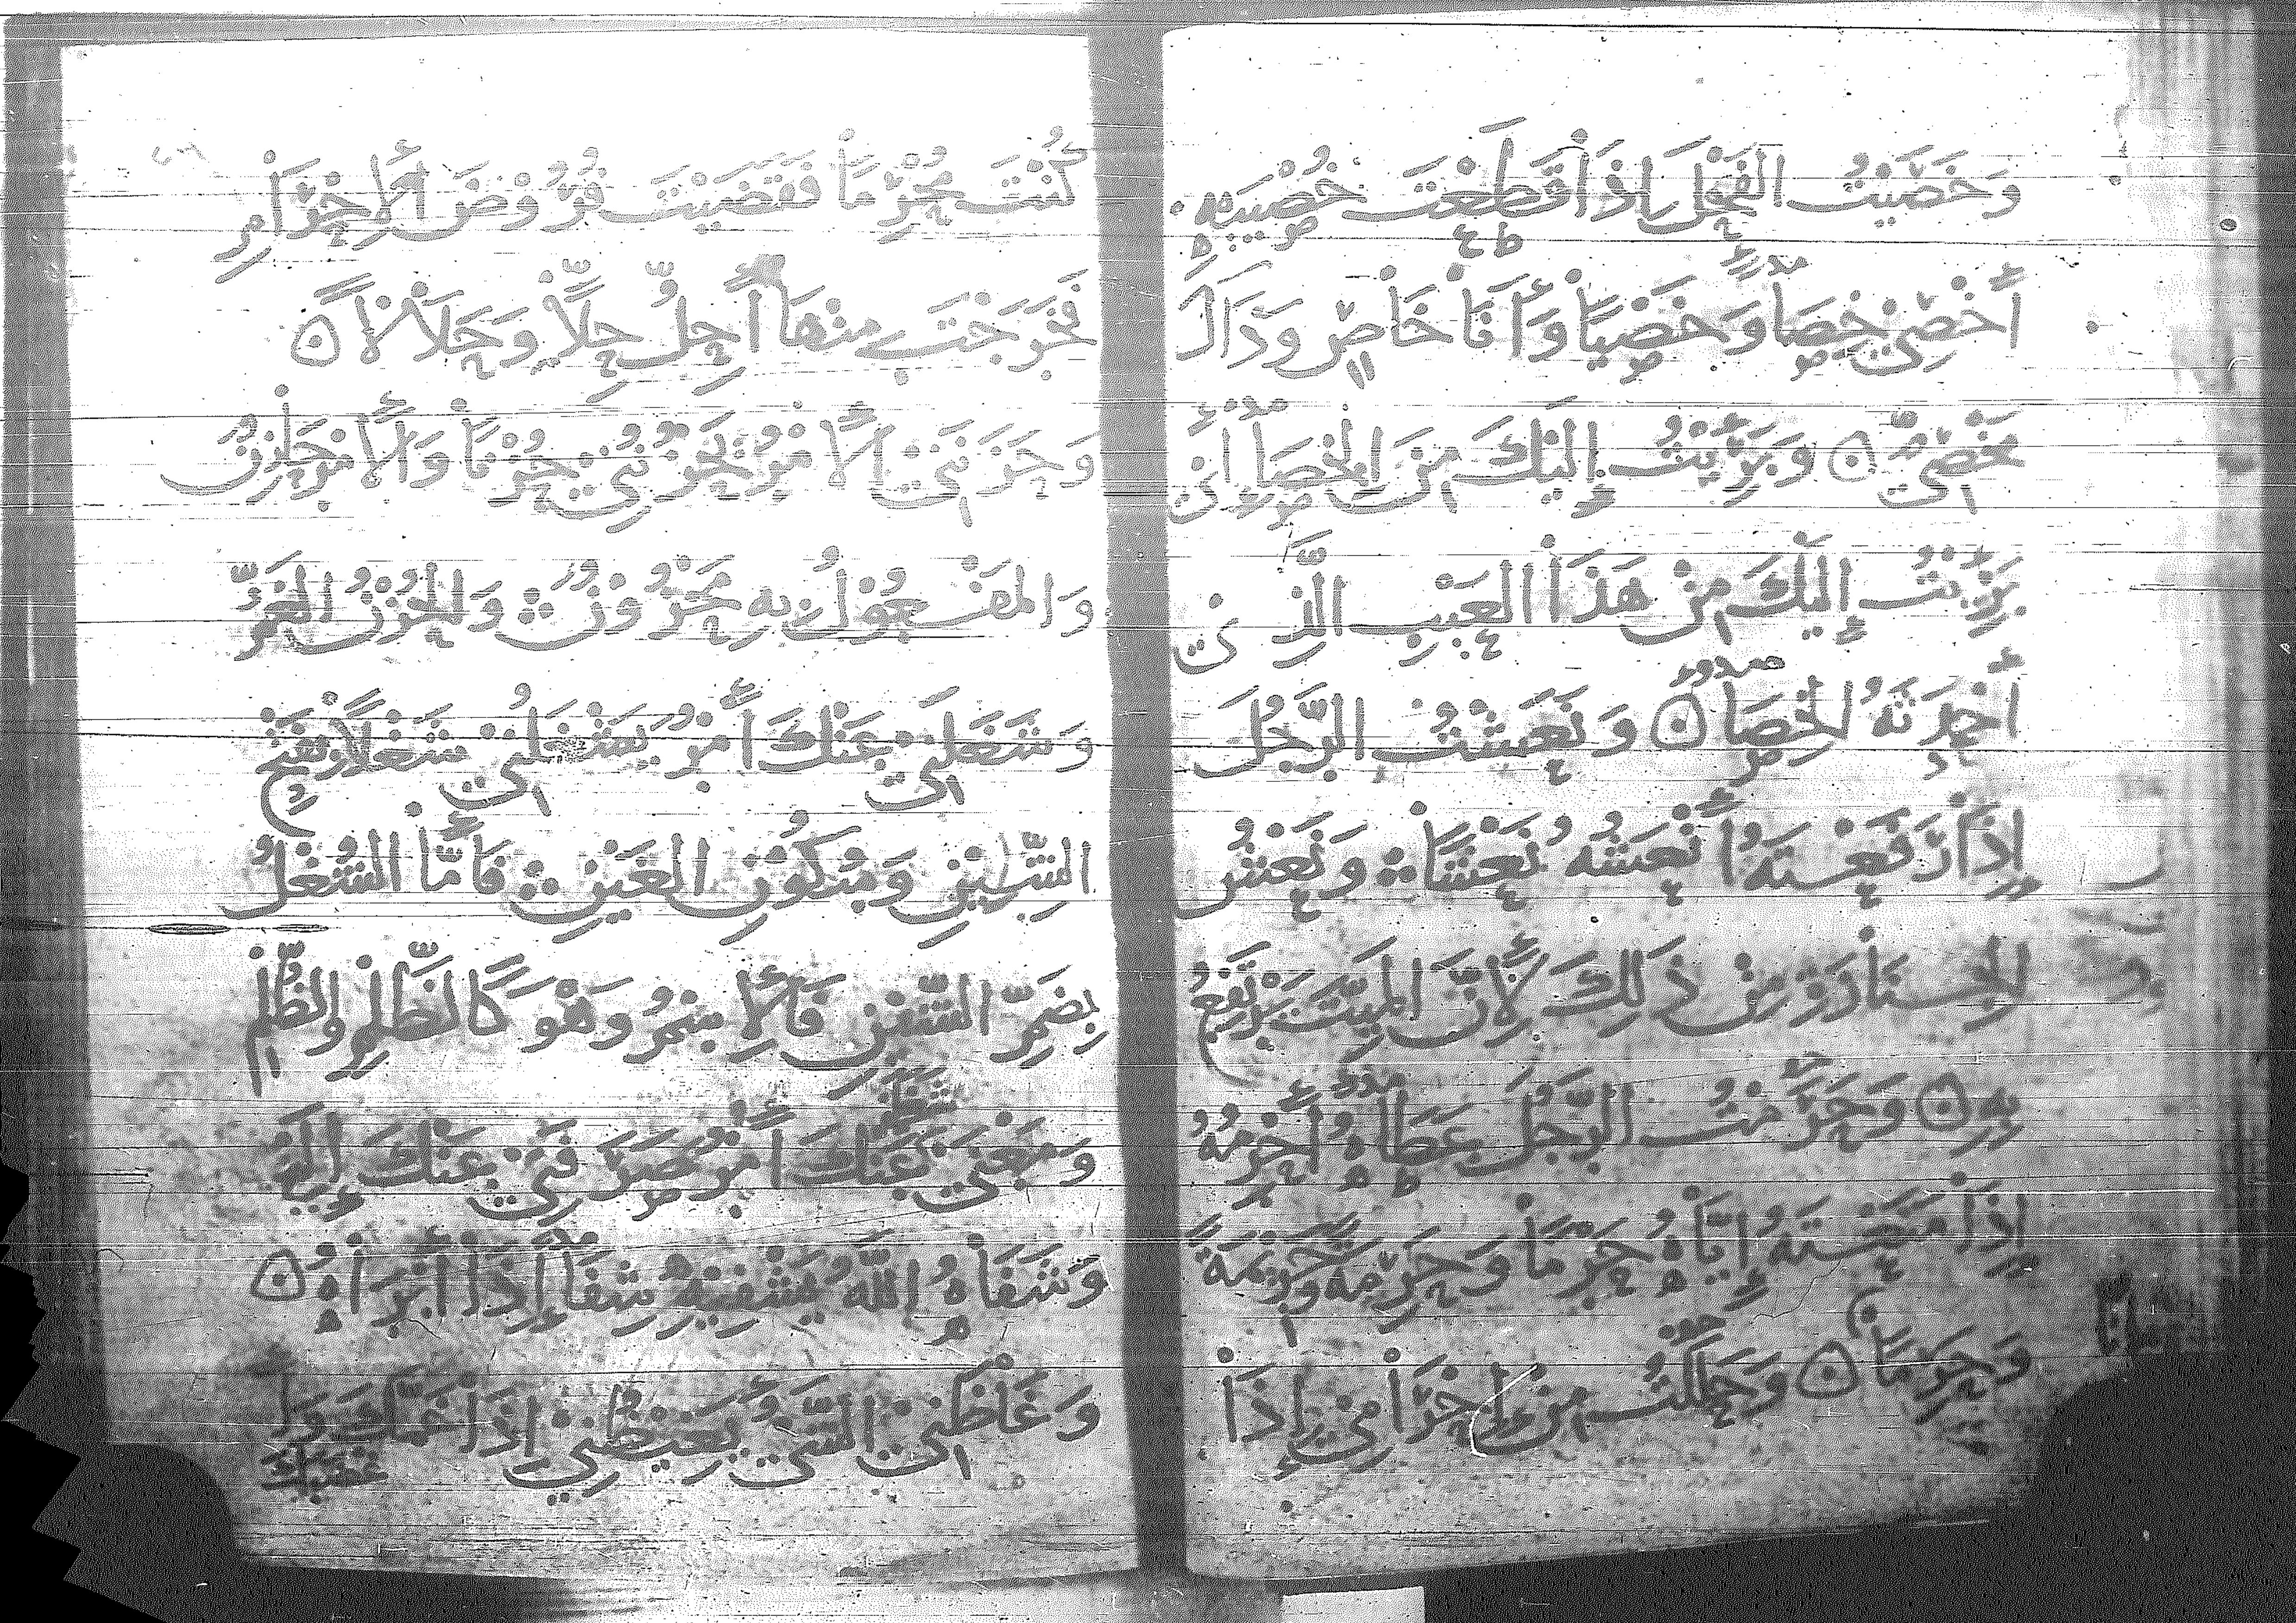 وَخَصَيْتُ الفَحْلَ إِذَا قَطَعْتَ خُصْيَيْهِ
أَخْصِيْ خِصَا وَخَصْيًا وَأَنَا خَاصٍ وَذَاكَ
مَخْصِيٌّ ۞ وَبَرِئْتُ إِلَيْكَ مِنَ الخِصَاءِ أَيْ
بَرِئْتُ إِلَيْكَ مِنْ هَذَا العَيْبِ الَّذِي
أَحْدَثَهُ الخِصَا ۞ وَنَعَشْتُ الرَّجُلَ
إِذَا رَفَعْتَهُ أَنْعَشُهُ نَعْشًا وَنَعْشُ
الجَنَازَةِ مِنْ ذَلِكَ لِأَنَّ المَيِّتَ يُرْفَعُ
بِهِ ۞ وَحَرَمْتُ الرَّجُلَ عَطَاهُ أَحْرِمُهُ
إِذَا مَنَعْتَهُ إِيَّاهُ حِرْمًا وَحِرْمَةً وَحَرِيْمَةً
وَحِرْمَانًا ۞ وَحَلَلْتُ مِنْ إِحْرَامِيْ إِذَا
كُنْتَ مُحْرِمًا فَقَضَيْتَ فُرُوْضَ الْإِحْرَامِ
فَخَرَجْتَ مِنْهَا أَحِلُّ حِلًّا وَحَلَالًا ۞
وَحَزَنَنِيْ الْأَمْرُ يَحْزُنُنِيْ حُزْنًا وَالْأَمْرُ حَازِنٌ
وَالمَفْعُوْلُ بِهِ مَحْزُوْنٌ وَالحُزْنُ الغَمُّ
وَشَغَلَنِيْ عَنْكَ أَمْرٌ يَشْغَلُنِيْ شَغْلًا بِفَتْحِ
الشِّيْنِ وَسُكُوْنِ الغَيْنِ فَأَمَّا الشُّغْلُ
بِضَمِّ الشِّيْنِ فَالْإِسْمُ وَهُوَ كَالظَّلْمِ وَالظُّلْمِ
وَمَعْنَى شَغَلَنِيْ عَنْكَ أَمْرٌ صَرَفَنِيْ عَنْكَ إِلَيْهِ
وَشَفَاهُ اللّٰهُ يَشْفِيْهِ شِفَاءً إِذَا أَبْرَأَهُ ۞
وَغَاظَنِيْ الشَّيْءُ يَغِيْظُنِيْ إِذَا غَمَّكَ وَ